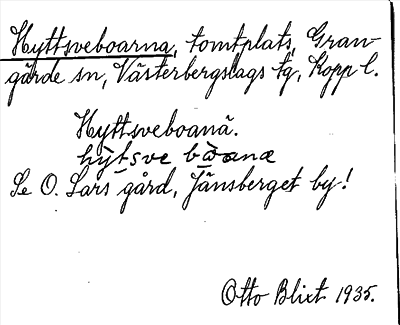 Hyttsveboarna, tomtplats, Gran-
gärde sn, Västerbergslags tg, Kopp l.
Hyttsveboanä.
hỳtsve bòanæ
Se O. Lars gård, Jänsberget by!
Otto Blixt 1935.